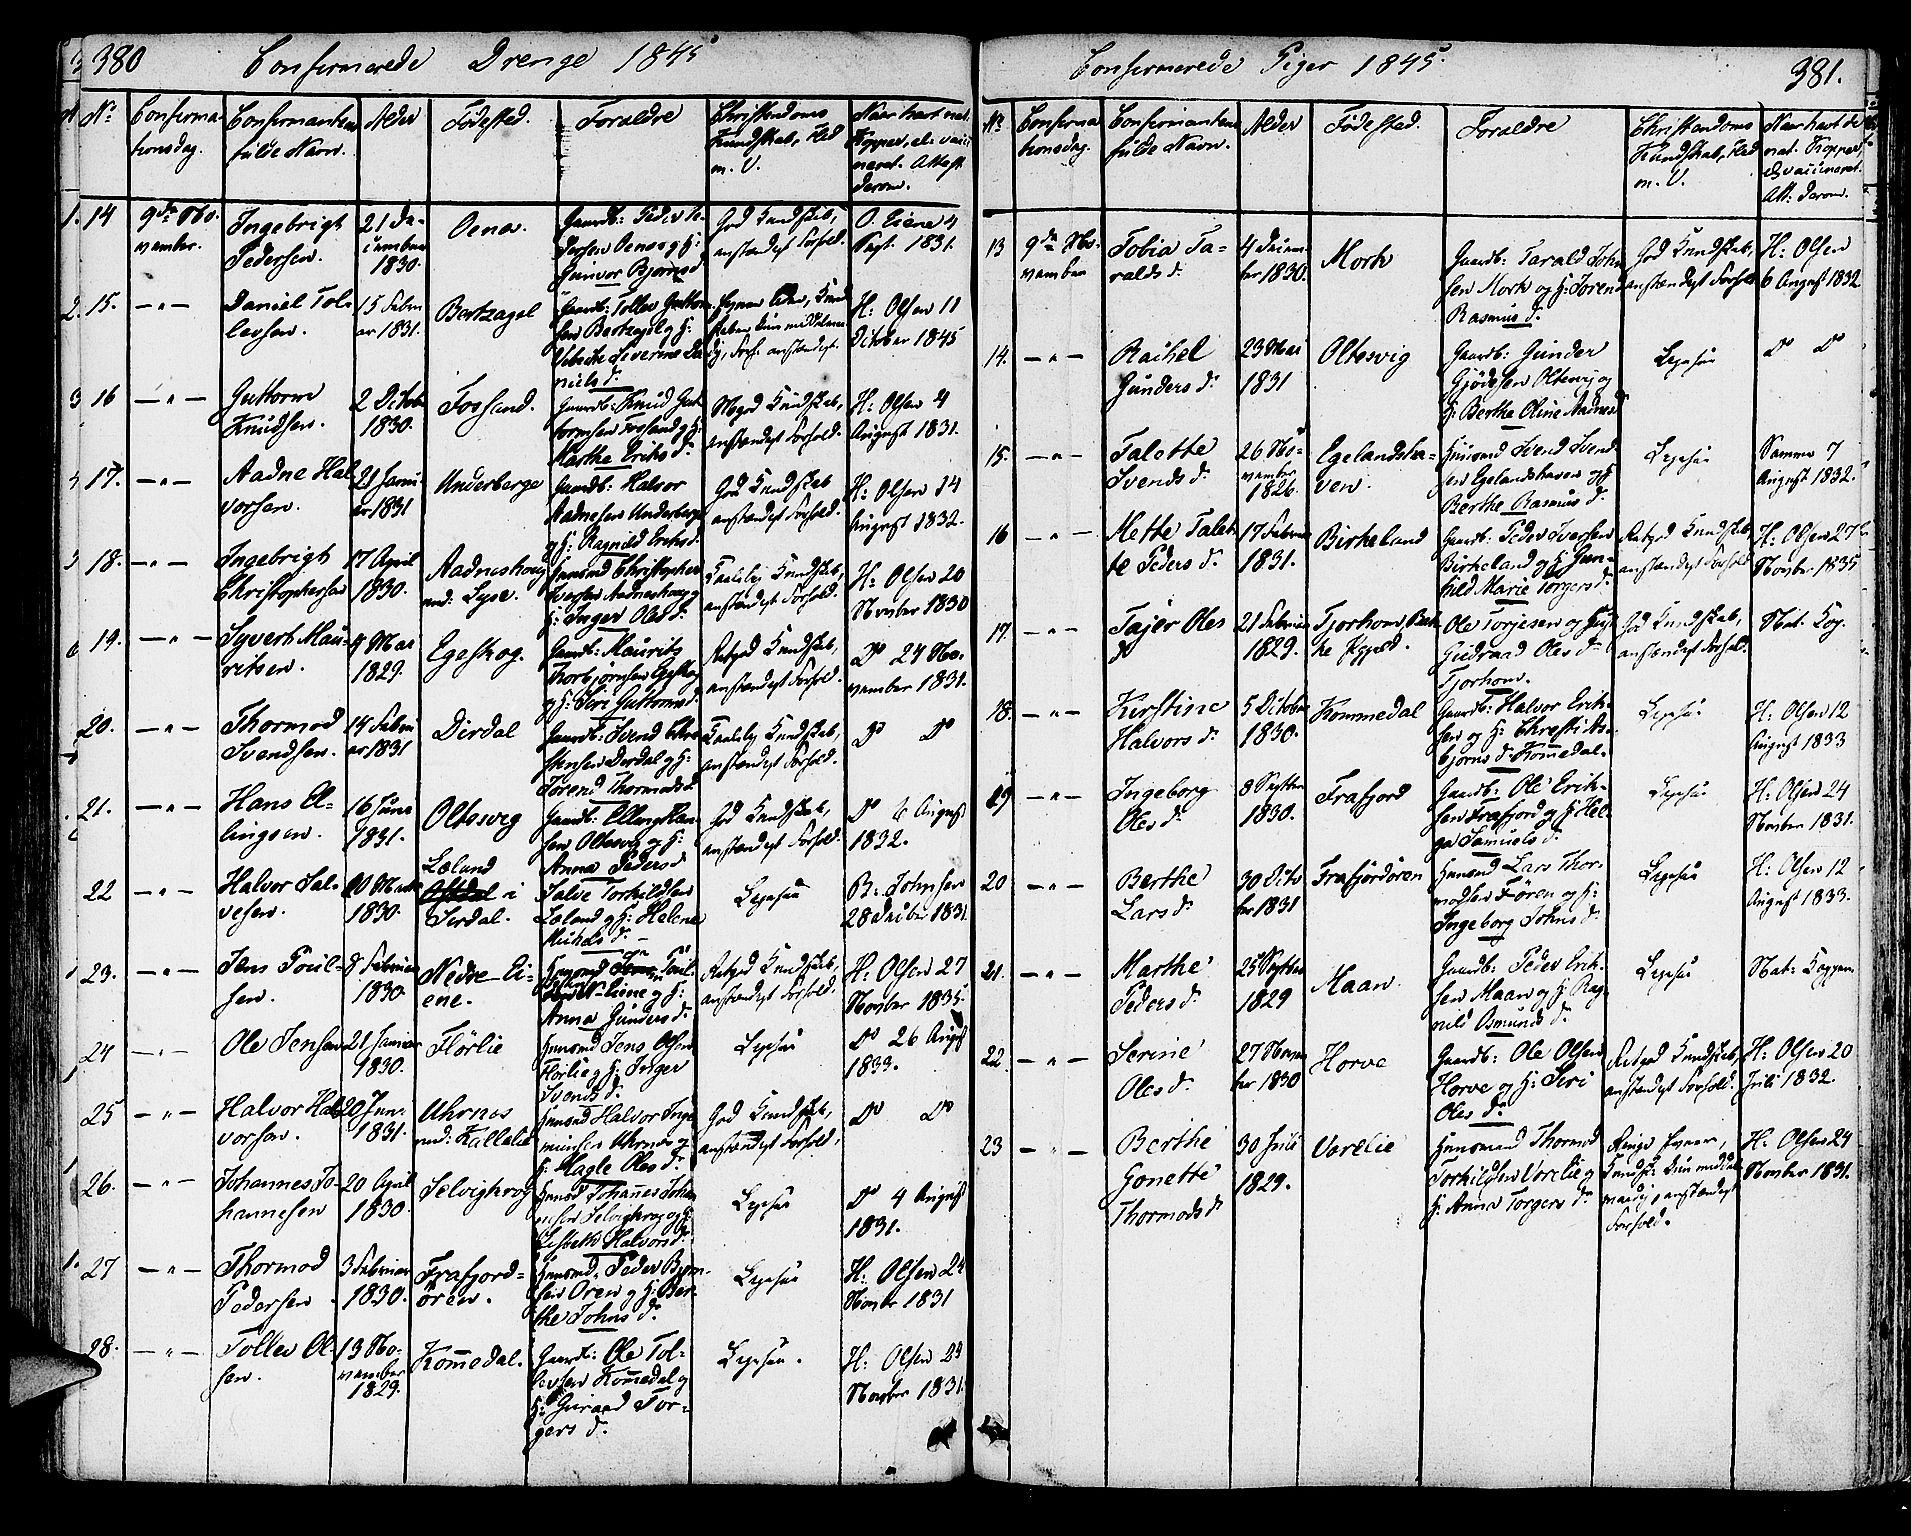 380
Confirmerede Drenge 1845
No
Confirma-
tionsdag.
Confirmantens
fulde Navn.
Alder
Fødested.
Forældre
Christendoms
Kundskab, Flid
m. V.
Naar havt nat.
Kopper, el. vacci
neret. Attest
derom.
14
9de No-
vember.
Ingebrigt
Pedersen.
21 De-
cember
1830.
Oenæ.
Gaardb: Peder Pe-
dersen Oenæs og H:
Gunvor Bjørnsd
God Kundskab,
anstændigt Forhold.
O. Eiene 4
Sept. 1831.
15.
— " —
Daniel Tol-
levsen.
15 Febru
ar 1831.
Bertzagel
Gaardb: Tollev Guttorm
sen Bertzagel og H:
Severine Da
niels d.
H: Olsen 11
October 1845
16
— " —
Guttorm
Knudsen.
2 Octob
1830.
Fossand.
Gaardb: Knud Gut
tormsen Fossand og H:
Marthe Eriks d.
Meget Kundskab,
anstændigt Forhold.
H: Olsen 4
August 1831.
17.
— " —
Aadne Hal
vorsen.
21 Janu
ar 1831
Underberge
Gaardb: Halvor
Aadnesen Underberge
og H: Ragnild Eriksd.
God Kundskab
anstændigt Forhold.
H: Olsen 14
August 1832.
18.
— " —
Ingebrigt
Christophersen
17 April
1830.
Aadneskoug
ved: Lyse.
Huusmd Christopher
Aadneskoug og
H: Inger Oles d.
Taalelig Kundskab,
anstændigt Forhold.
H: Olsen 20
Novber 1830
19.
— " —
Syvert Mau-
ritsen.
4 Mai
1829.
Egeskog.
Gaardb: Maurits
Torbjørnsen Egeskog
og H: Siri Guttormsd.
Retgod Kundskab,
anstændigt Forhold.
Do 24 No-
vember 1831.
20.
— " —
Thormod
Svendsen.
14 Febru
ar 1831
Dirdal
Gaardb: Svend Chri
stensen Dirdal og H:
Torend Thormodsd.
Taalelig Kundskab,
anstændigt Forhold.
Do Do
21.
— " —
Hans El-
lingsen.
16 Juni
1831.
Oltesvig
Gaardb: Elling Han
sen Oltesvig og H:
Anna Pedersd
God Kundskab,
anstændigt Forhold.
Do 6 August
1832.
22
— " —
Halvor Sal-
vesen.
1830.
Lœland
i
Sirdal.
Salve Torkildsen
Lœland og H: Helene
Michels d.
Ligesaa
B: Johnsen
28 Decbr 1831
23.
— " —
Jens Poul-
sen.
8 Februar
1830
Nedre Ei-
ene.
Huusmd Poul-
sen N. Eiene og H:
Anna Gunders d.
Retgod Kundskab,
anstændigt Forhold.
H: Olsen 27
Novber 1835.
24
— " —
Ole Jensen
21 Januar
1830.
Flørlie
Huusmd Jens Olsen
Flørlie og H: Inger
Svends d.
Ligesaa
Do 26 August
1833.
25
— " —
Halvor Hal-
vorsen.
20 Jan.
1831.
Uhrnes
ved: Kallelid
Huusmd Halvor Inge
mundsen Uhrnes og
H: Magle Oles d.
God Kundskab,
anstændigt Forhold.
Do Do
26.
— " —
Johannes Jo-
hannesen
20 April
1830.
Selvigkrog
Huusmd Johannes Johan
nesen Selvigkrog og H:
Lisbeth Halvorsd.
Ligesaa
Do 4 August
1831.
27
— " —
Thormod
Pedersen
3 Februar
1830.
Frafjord-
ören.
Huusmd: Peder Bjørn-
sen Ören og H: Ber-
the Johns d.
Ligesaa
H: Olsen 24
Novbr 1831
28.
— " —
Tollev Ol-
sen.
13 No-
vember
1829.
Kommedal.
Gaardb: Ole Tol-
levsen Kommedal og
H: Guraad Tor-
gers d.
Ligesaa.
H: Olsen 23
Novber 1831
Confirmerede Piger 1845.
381.
No
Confirma
tionsdag.
Confirmantens
fulde Navn.
Alder
Fødested.
Forældre
Christendoms
Kundskab, Flid
m. V.
Naar havt de
nat. Kopper,
el. vaccineret.
Att: derom.
13
9de No-
vember
Tobia Ta-
ralds d.
4 Decem-
ber 1830.
Mork
Gaardb: Tarald John
sen Mork og H: Soren
Rasmus d.
God Kundskab,
anstændigt Forhold
H: Olsen
6 August 1832
14.
— " —
Rachel
Gunders d.
23 Mai
1831
Oltesvig
Gaardb: Gunder
Gjødesen Oltesvig og
H: Berthe Oline Andreasd
Ligesaa
Do Do
15.
— " —
Talette
Svends d.
26 No-
vember
1826.
Egelandsha-
ven.
Huusmd Svend Svend
sen Egelandshaven og H
Berthe Rasmus d.
Ligesaa
Samme 7
August 1832.
16
— " —
Mette Talet-
te Peders d.
17 Februar
1831.
Birkeland
Gaardb: Peder Iversen
Birkeland og H: Gun-
hild Marie Torgers d.
Retgod Kundskab,
anstændigt Forhold
H: Olsen 27
Novber 1835
17.
— " —
Tajer Oles
d.
21 Februar
1829.
Tjorhom, Bak-
ke Pgjeld.
Ole Torjesen og
Gudraad Oles d.
Tjorhom.
God Kundskab,
anstændigt Forhold.
Nat. Kop.
18.
— " —
Kirstine
Halvors d.
5 October
1830.
Kommedal
Gaardb: Halvor Erik-
sen og H: Christi As-
bjørns d. Kommedal.
Ligesaa
H: Olsen 12
August 1833
19
— " —
Ingeborg
Oles d.
8 Septbr
1830.
Frafjord
Gaardb: Ole Erik-
sen Frafjord og H: Hel-
ga Samuels d.
Ligesaa
H: Olsen 24
Novber 1831.
20
— " —
Berthe
Lars d.
30 Octo
ber 1831
Frafjordören
Huusmd Lars Thor-
modsen Fören og H:
Ingeborg Johns d.
Ligesaa
H: Olsen 12
August 1833.
21.
— " —
Marthe
Peders d.
25 Septbr
1829
Maan.
Gaardb: Peder Erik-
sen Maan og H: Rag-
nild Osmunds d.
Ligesaa
Nat: Kopper.
22.
— " —
Serine
Oles d.
27 Novem
ber 1830
Horve
Gaardb: Ole Olsen
Horve og H: Siri
Oles d.
Retgod Kundskab,
anstændigt Forhold.
H: Olsen 20
Juli 1832.
23
— " —
Berthe
Gonette
Thormods d.
30 Juli
1829.
Vorelie
Huusmand Thormod
Torkildsen Vorelie og
H: Anna Torgers d.
Ringe Evner,
Kundsk: kun middel
maadig, anstændigt
Forhold.
H: Olsen 24
Novber 1831.